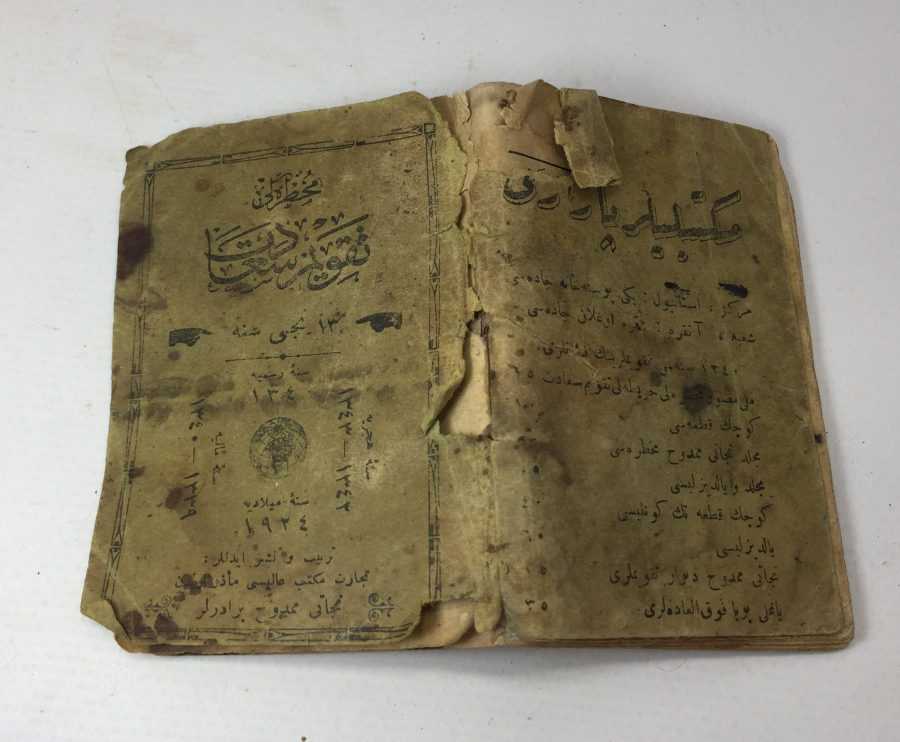 مخطره‌لی
تقویم سعادت
۱۳ نجی سنه
سنهٔ رسمیه
۱۳۴۰
سنهٔ هجریه
۱۳۴۳ — ۱۳۴۲
سنهٔ مالیه
۱۳۴۰ — ۱۳۳۹
سنهٔ میلادیه
۱۹۲۴
ترتیب و نشر ایدنلر :
تجارت مکتب عالیسی مأذونلرندن
نجاتی ممدوح برادرلر
مرکز ، استانبول : یکی پوستخانه جاده‌سی
شعبه ، آنقره : جاده‌سی
۱۳۴۰ سنه‌سی تقویملرینك
ملی مصور مخطره‌لی خریطه‌لی تقویم سعادت
کوچك قطعه‌سی
مجلد نجاتی ممدوح مخطره‌سی
مجلد و یالدیزلیسی
کوچك قطعه تك کونلیسی
یالدیزلیسی
نجاتی ممدوح دیوار تقویملری
یاغلی بویا فوق العاده‌لری ۳۵